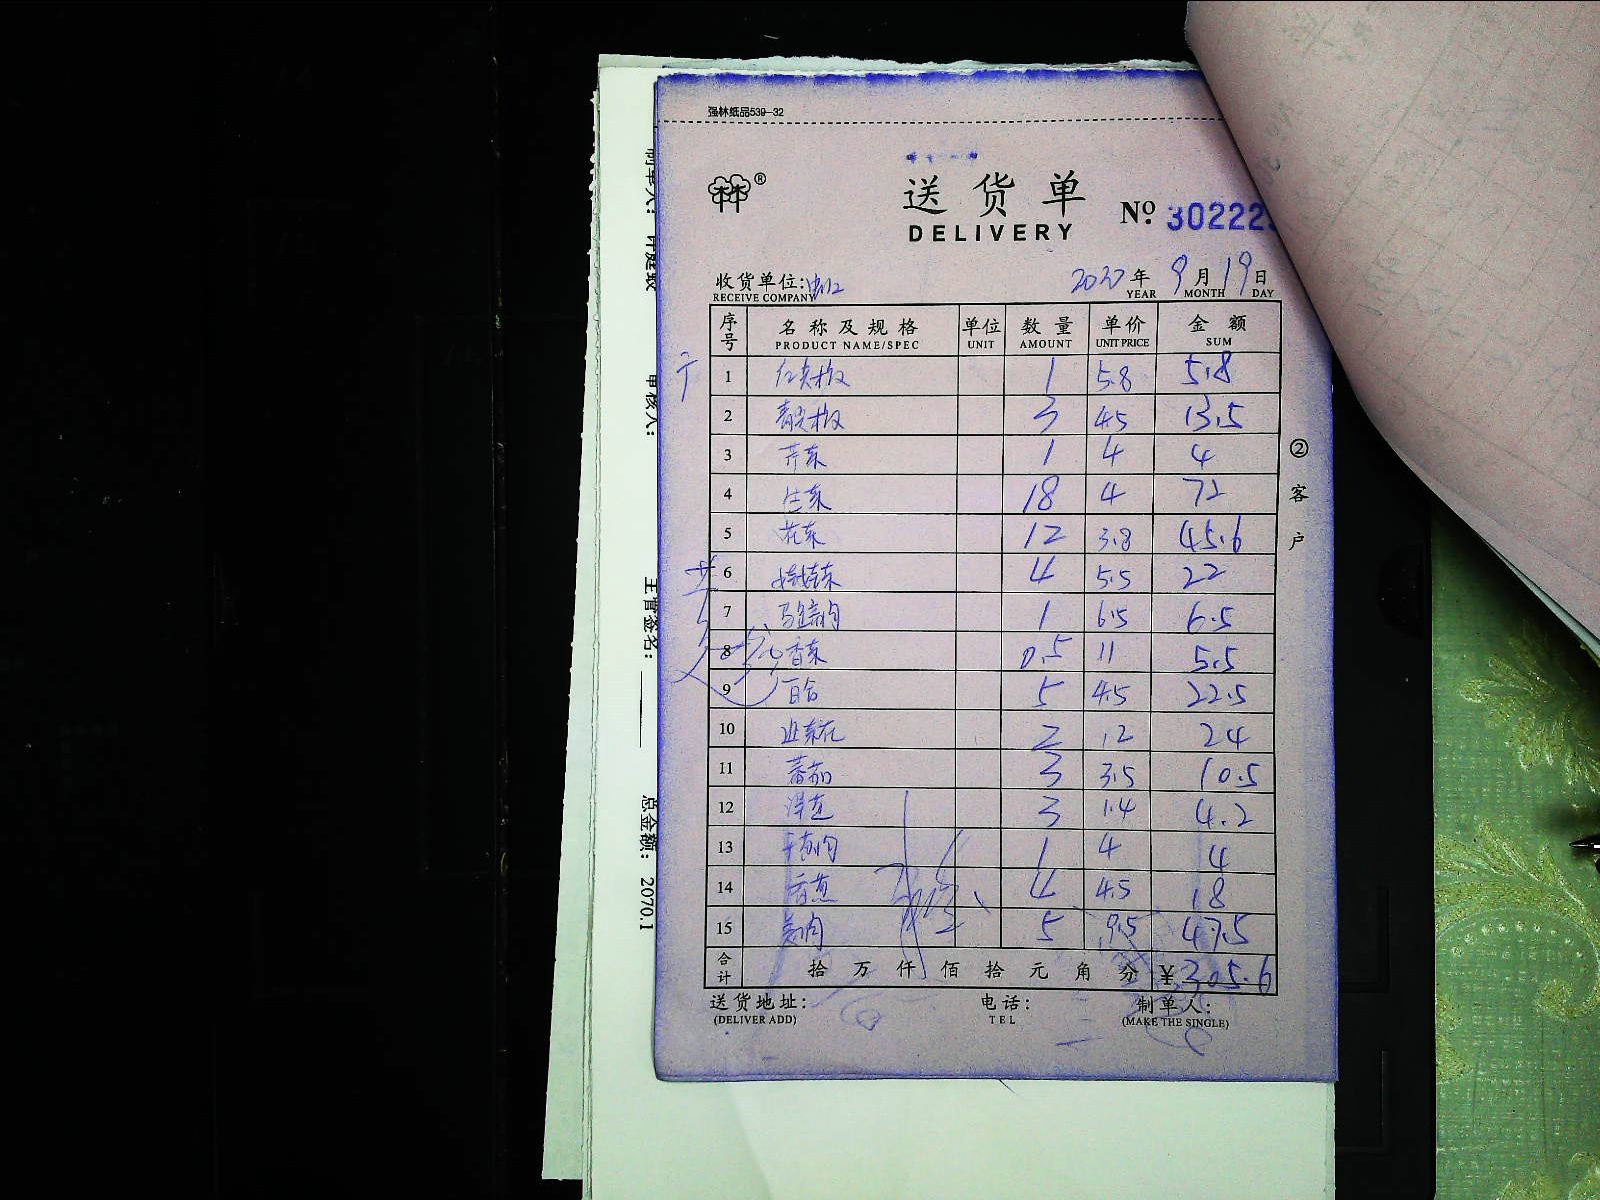 强林纸品539-32
送货单
DELIVERY
№ 30222
收货单位:
RECEIVE COMPANY
2020年 9月 19日
YEAR MONTH DAY
序号 名称及规格 单位 数量 单价 金额
PRODUCT NAME/SPEC UNIT AMOUNT UNIT PRICE SUM
1 红尖椒 1 5.8 5.8
2 青尖椒 3 4.5 13.5
3 芹菜 1 4 4
4 生菜 18 4 72
5 花菜 12 3.8 45.6
6 娃娃菜 4 5.5 22
7 马蹄肉 1 6.5 6.5
8 香菜 0.5 11 5.5
9 百合 5 4.5 22.5
10 2 12 24
11 蕃茄 3 3.5 10.5
12 3 1.4 4.2
13 1 4 4
14 香葱 4 4.5 18
15 姜肉 5 9.5 47.5
合计 拾 万 仟 佰 拾 元 角 分 ¥305.6
送货地址: 电话: 制单人:
(DELIVER ADD) TEL (MAKE THE SINGLE)
②客户
审核人:
主管签名:
总金额: 2070.1